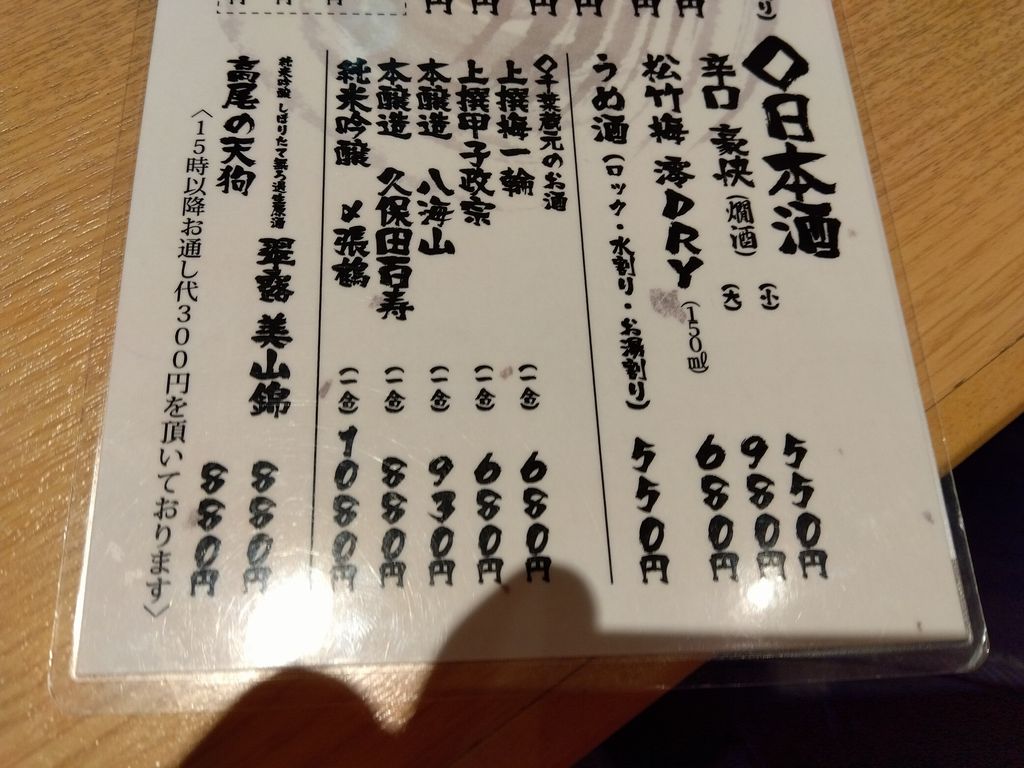 り)
円 円 円 円 円 円
円 円 円
◇日本酒
辛口 豪快(燗酒) (小) 550円
(大) 980円
松竹梅 澪DRY(150㎖) 680円
うめ酒(ロック・水割り・お湯割り) 550円
◇千葉蔵元のお酒
上撰梅一輪 (一合) 680円
上撰甲子政宗 (一合) 680円
本醸造 八海山 (一合) 930円
本醸造 久保田百寿 (一合) 880円
純米吟醸 〆張鶴 (一合) 1080円
翠露 美山錦 880円
純米吟醸 しぼりたて無ろ過生原酒
高尾の天狗 880円
〈15時以降お通し代300円を頂いております〉